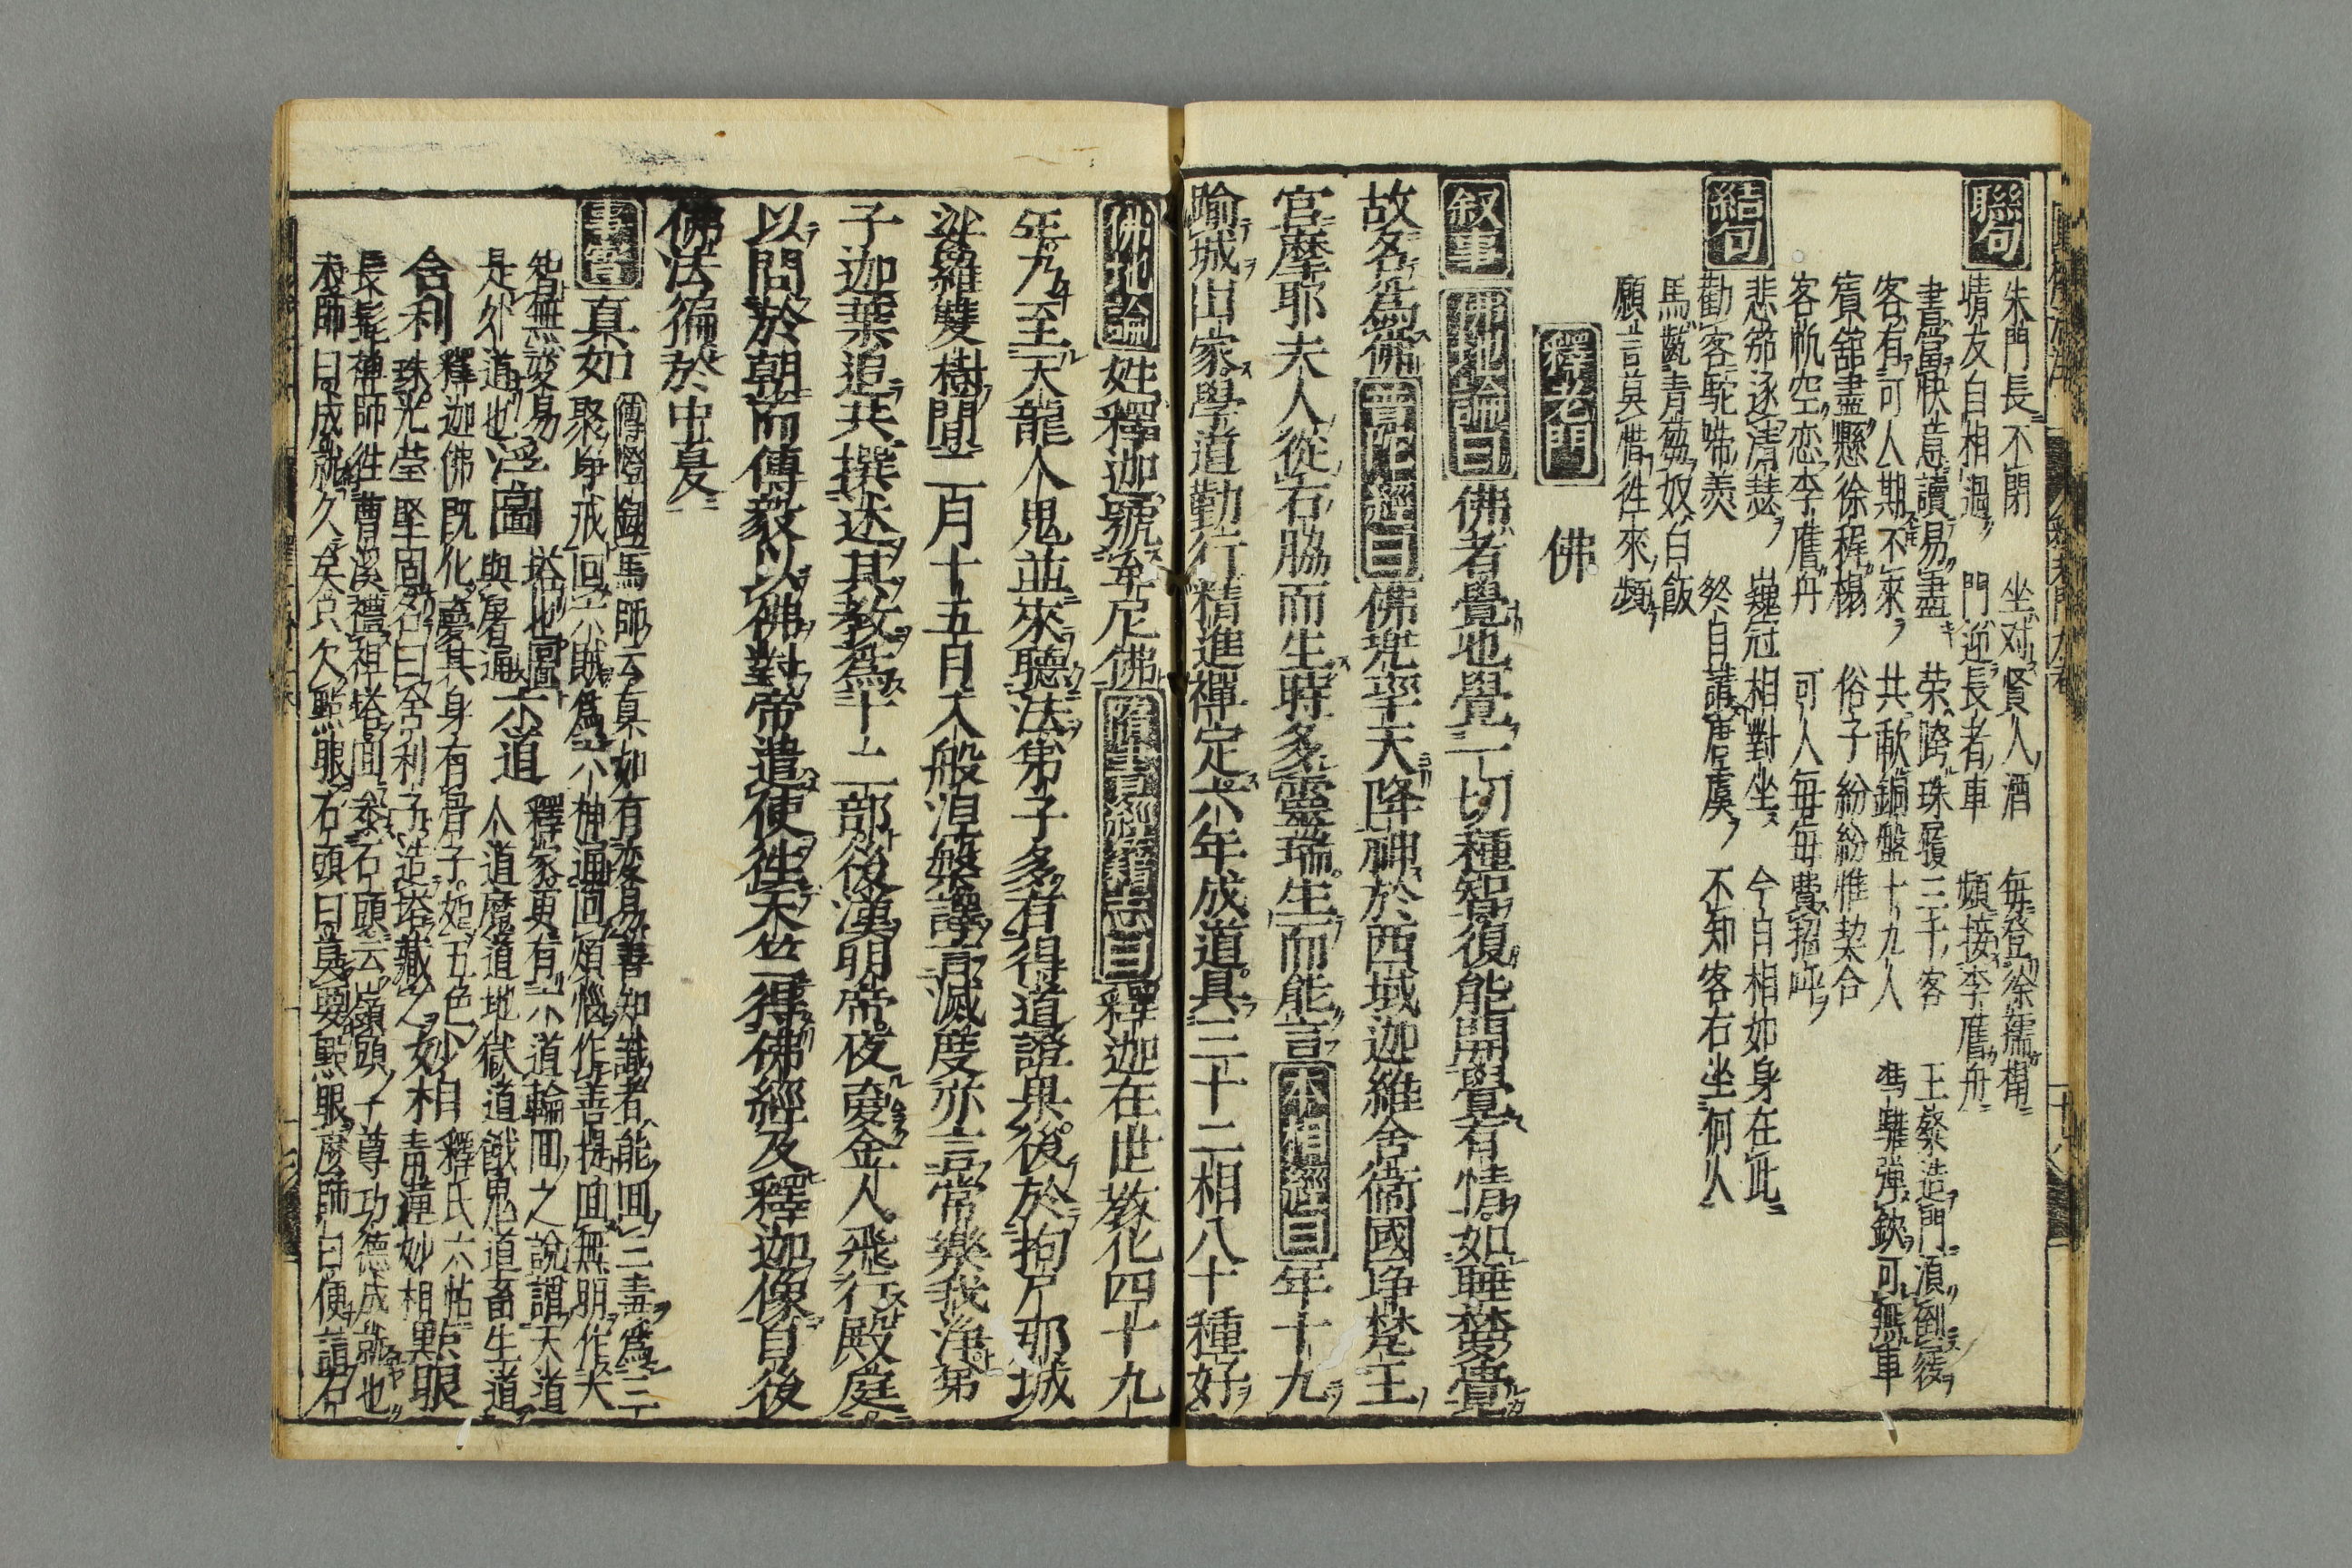 聯句
朱門長不閉 坐对賢人酒 毎登徐孺榻
情友自相過 門迎長者車 頻接李膺舟
書當快意讀易盡 荣跨珠履三千客 王粲造門須倒屣
客有可人期不來 共歃銅盤十九人 馮驩彈鋏可無車
賓舘盡懸徐穉榻 俗子紛紛惟契合
客帆空恋李膺舟 可人毎毎費招呼
結句
悲笳逐清瑟 巍冠相對坐 今日相如身在此
勸客駝蹄羡 祭自諸唐虞 不知客右坐何人
馬齕青蒭奴白飯
願言莫惜徃來頻
釋老門 佛
叙事 佛地論曰 佛者覺也覺一切種智復能開覺有情如睡夢覺
故名爲佛 普陀經曰 佛兠率天降神於西域迦維舍衛國净梵王
宫摩耶夫人從右脇而生時多靈瑞生而能言 本相經曰 年十九
踰城出家學道勤行精進禪定六年成道具三十二相八十種好
佛地論 姓釋迦號牟尼佛 隋書經籍志曰 釋迦在世教化四十九
年乃至天龍人鬼並來聽法弟子多有得道證果後於拘尸那城
娑羅雙樹間二月十五日入般涅槃譯言滅度亦言常樂我淨弟
子迦葉追共撰述其教爲十二部後漢明帝夜夢金人飛行殿庭
以問於朝而傅毅以佛對帝遣使徃天竺得佛經及釋迦像自後
佛法徧於中夏
事實 真如 傳燈録 馬師云真如有変易善知識者能囬三毒爲三
聚净戒回六賊爲六神通回煩惱作菩提囬無明作大
智無変易 浮圖 塔也圖 六道 釋家更有六道輪囬之說謂天道
是外道也 與屠遍 人道魔道地獄道餓鬼道畜生道
舍利 釋迦佛既化慶其身有骨子如五色 妙相 釋氏六帖 㸃眼
珠光莹堅固名曰舍利子造塔藏之 妙相 青蓮妙相
長髭禅師徃曹溪禮祖塔囬叅石頭云嶺頭一尊功德成就也
未師曰成就久矣只欠點眼石頭曰莫要點眼麽師曰便請石